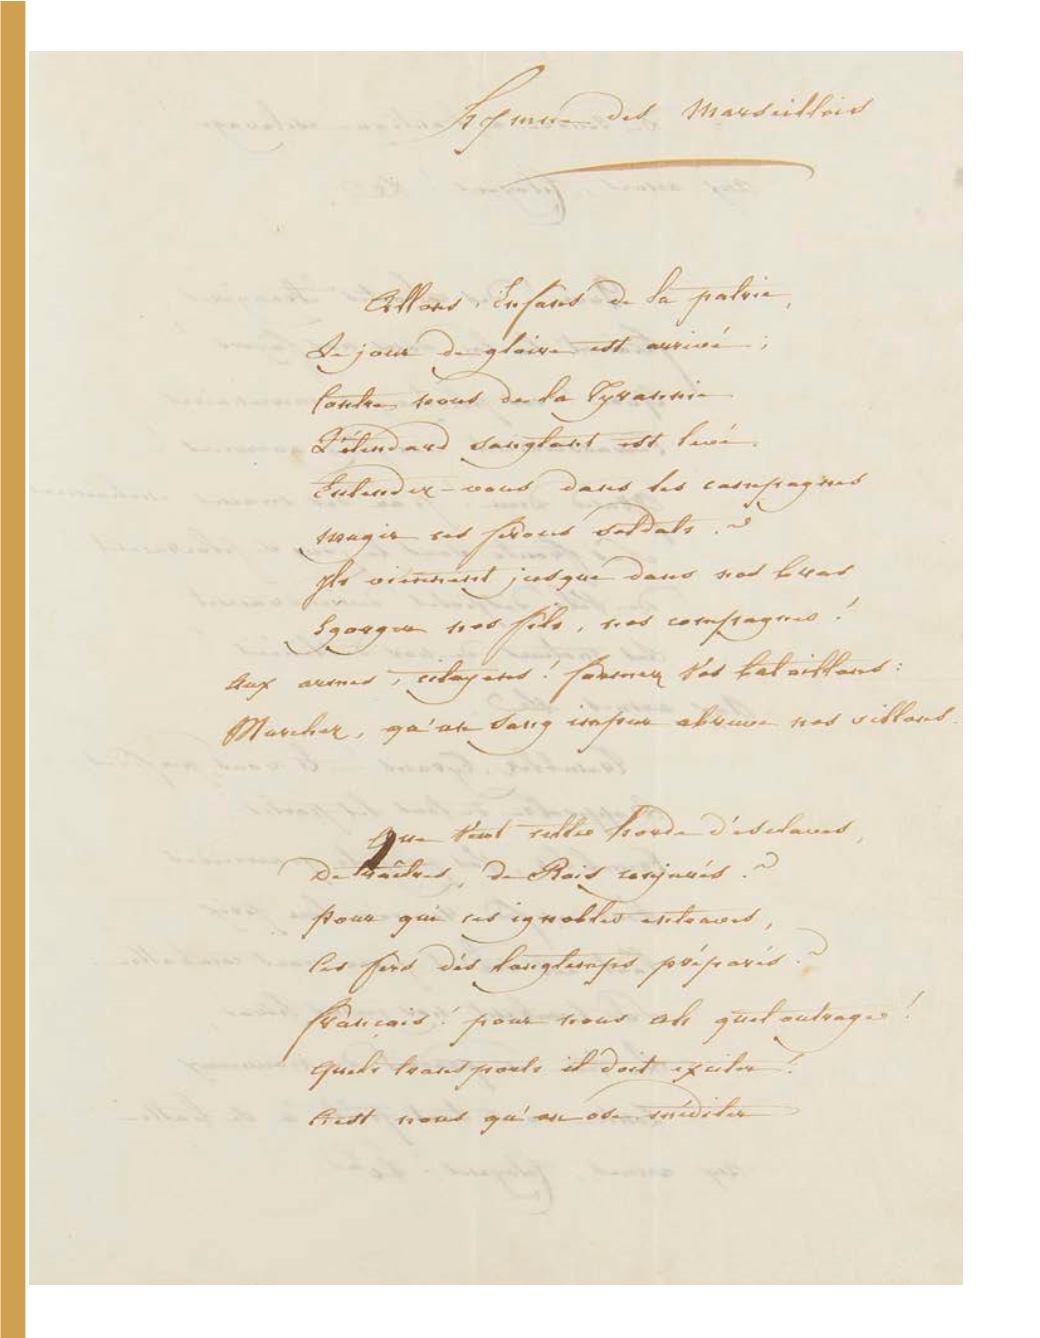 Hymne des Marseillois
Allons, Enfans de la patrie,
Le jour de gloire est arrivé ;
Contre nous de la Tyrannie
L'étendard sanglant est levé.
Entendez-vous dans les campagnes
mugir ces féroces soldats ?
Ils viennent jusque dans nos bras
Egorger nos fils, nos compagnes !
Aux armes, citoyens ! formez vos bataillons :
Marchez, qu'un sang impur abreuve nos sillons.
Que veut cette horde d'esclaves,
De traîtres, de Rois conjurés ?
pour qui ces ignobles entraves,
Ces fers dès longtemps préparés ?
français ! pour nous ah quel outrage !
quels transports il doit exciter !
C'est nous qu'on ose méditer